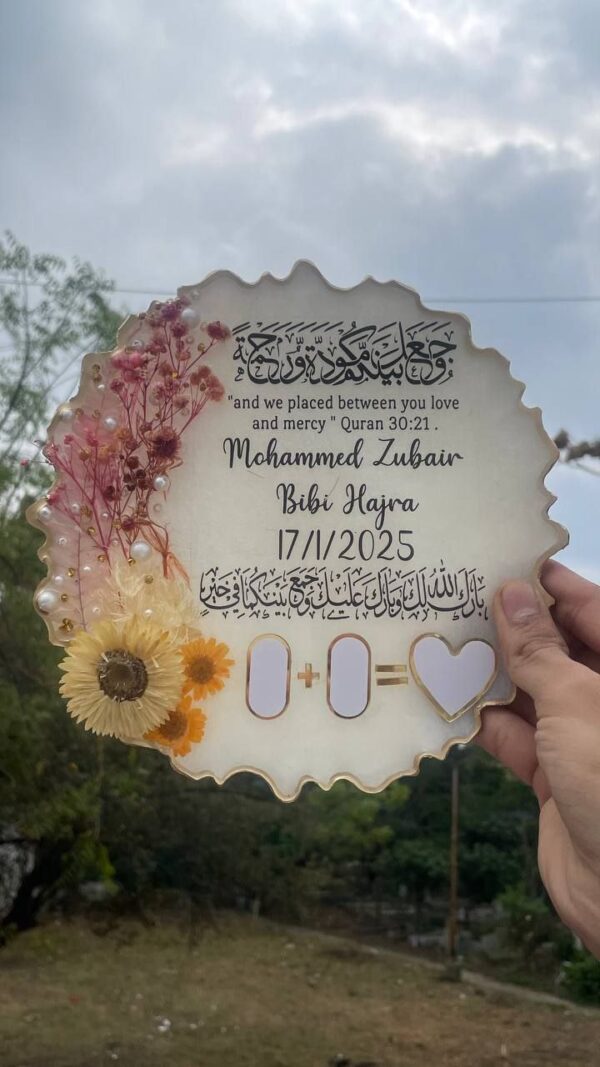 وَجَعَلَ بَيْنَكُم مَّوَدَّةً وَرَحْمَةً
"and we placed between you love
and mercy " Quran 30:21 .
Mohammed Zubair
Bibi Hajra
17/1/2025
بَارَكَ اللهُ لَكَ وَبَارَكَ عَلَيْكَ وَجَمَعَ بَيْنَكُمَا فِي خَيْرٍ
+ =